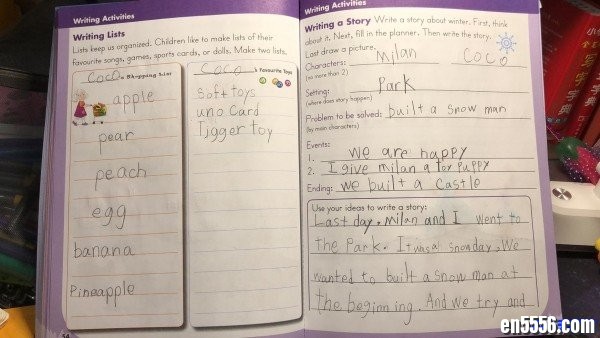 Writing Activities
Writing Lists
Lists keep us organized. Children like to make lists of their
favourite songs, games, sports cards, or dolls. Make two lists.
CoCo's Shopping List
apple
pear
peach
egg
banana
Pineapple
CoCo's Favourite Toys
Soft toys
uno Card
Tigger toy
Writing Activities
Writing a Story Write a story about winter. First, think
about it. Next, fill in the planner. Then write the story.
Last draw a picture.
Characters: Milan CoCo
(no more than 2)
Setting: Park
(where does story happen)
Problem to be solved: built a snow man
(by main characters)
Events:
1. We are happy
2. I give milan a toy puppy
Ending: We built a castle
Use your ideas to write a story:
Last day. Milan and I went to
the Park. It was a snowday. We
wanted to built a snow man at
the beginning. And we try and
en5556.com